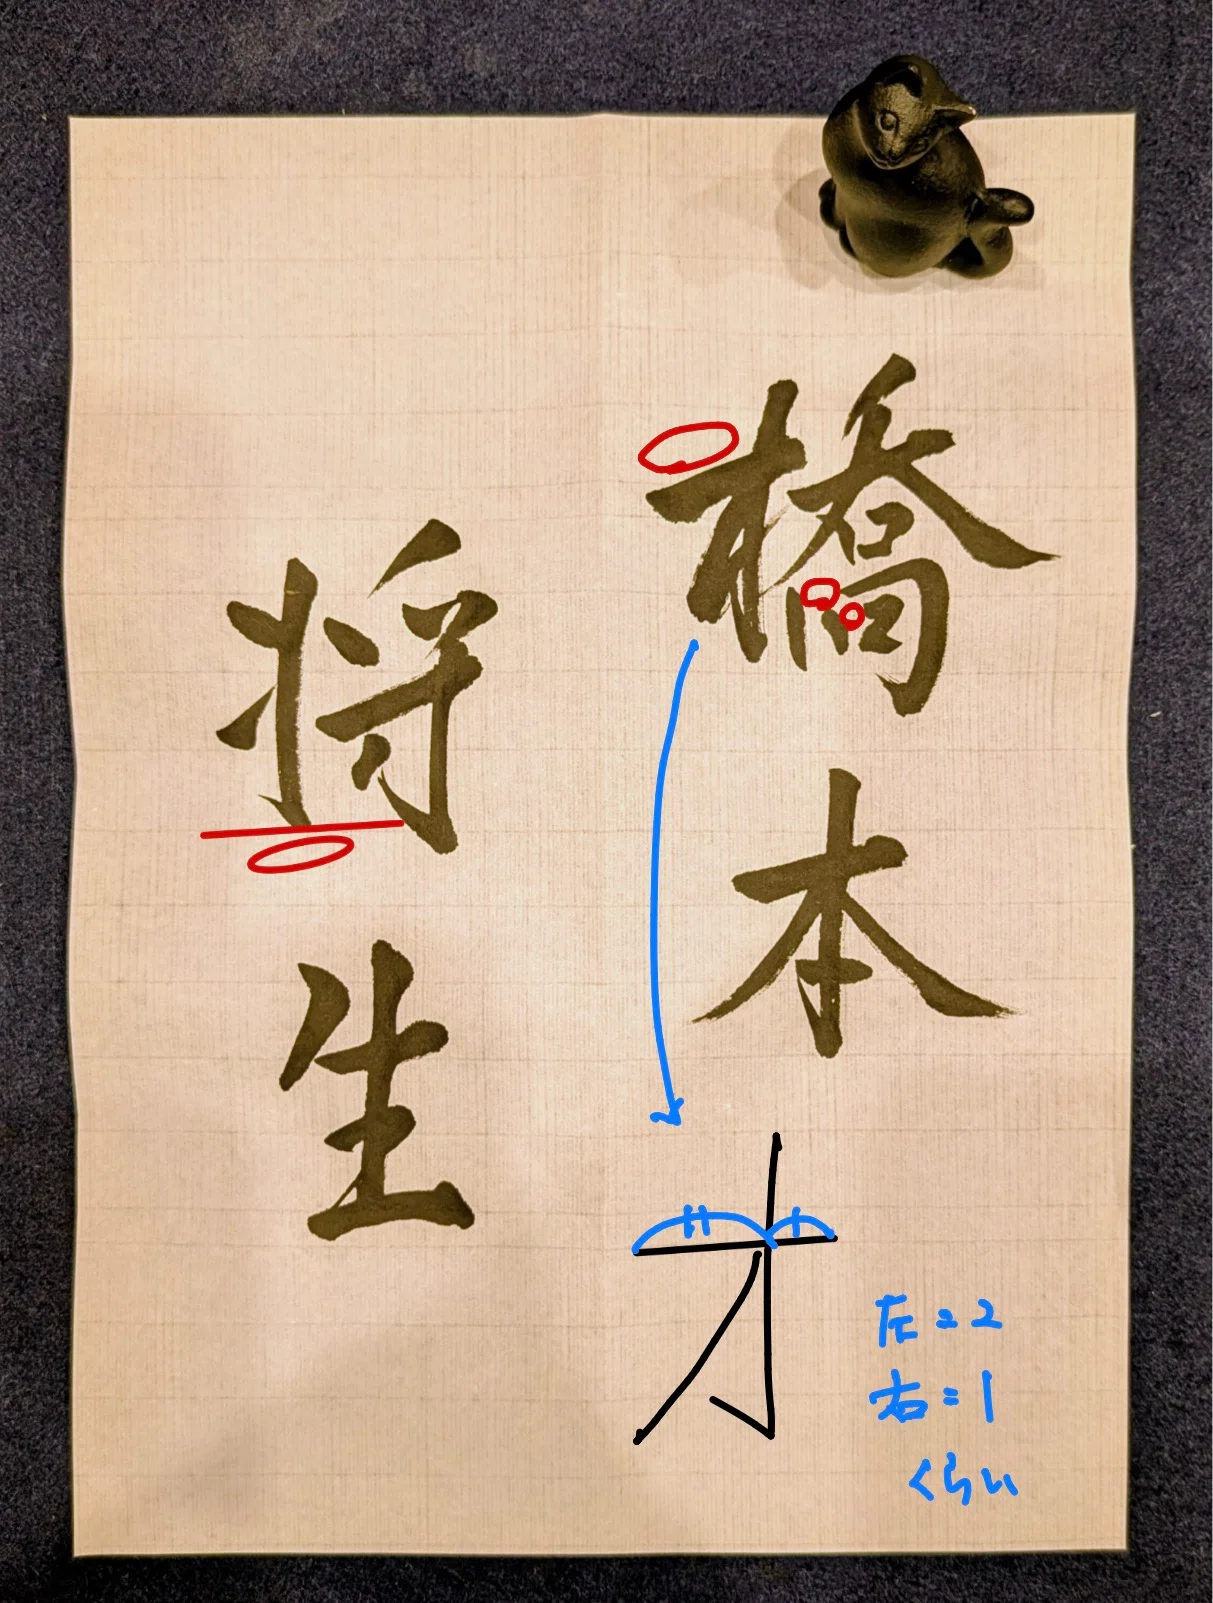 橋本
将生
左=2
右=1
くらい